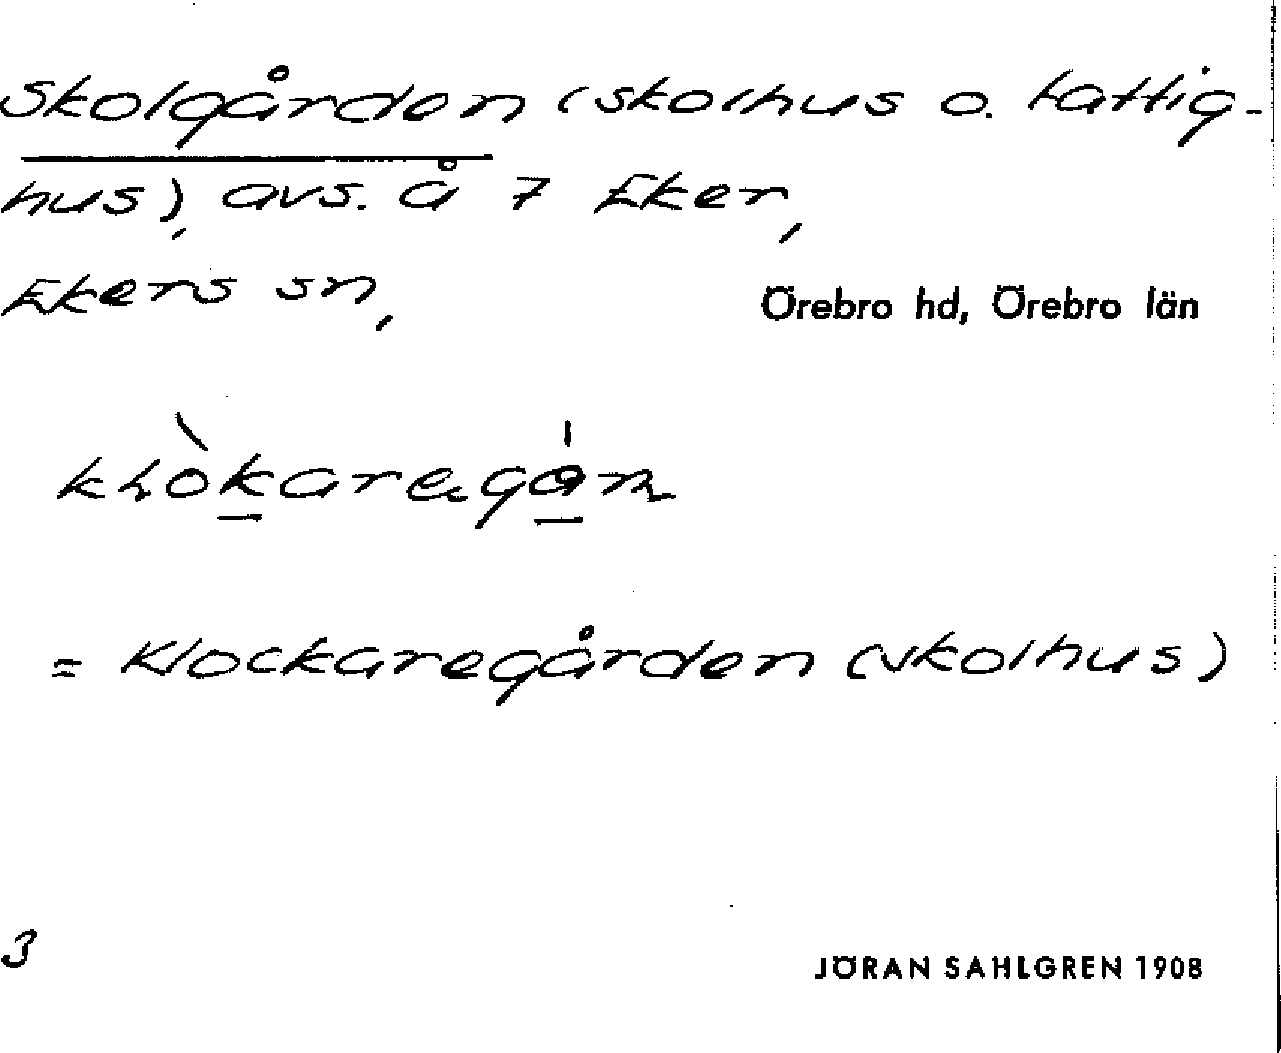 Skolgården (skolhus o. fattig-
hus), avs. å 7 Eker,
Ekers sn, Örebro hd, Örebro län
= Klockaregården (skolhus)
3 JÖRAN SAHLGREN 1908